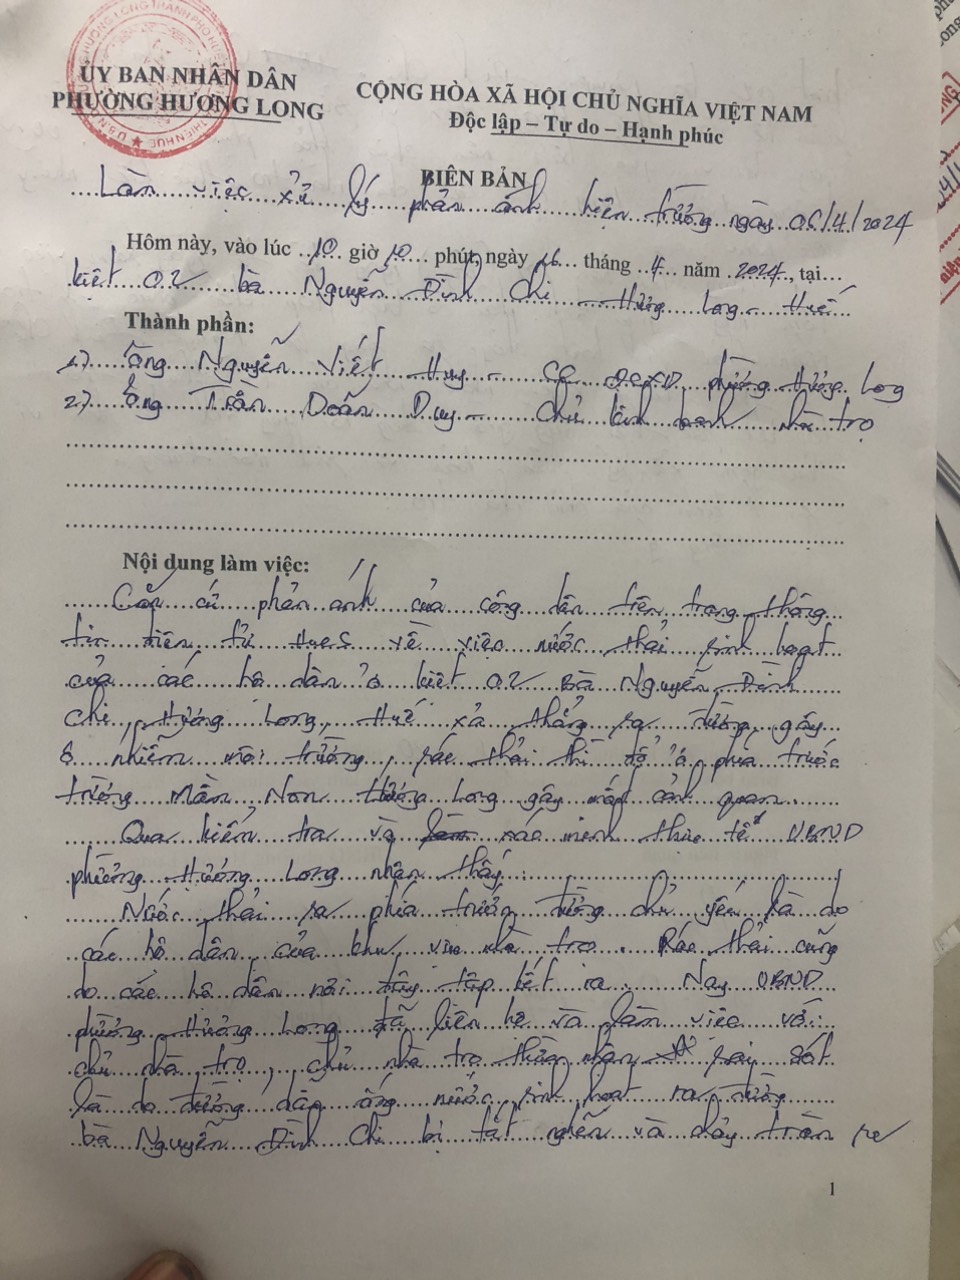 ỦY BAN NHÂN DÂN
PHƯỜNG HƯƠNG LONG
CỘNG HÒA XÃ HỘI CHỦ NGHĨA VIỆT NAM
Độc lập – Tự do – Hạnh phúc
BIÊN BẢN
Làm việc xử lý phản ánh hiện trường ngày 06/4/2024
Hôm này, vào lúc 10 giờ 10 phút, ngày 16 tháng 4 năm 2024, tại
kiệt 02 bà Nguyễn Đình Chi - Hương Long - Huế
Thành phần:
1) Ông Nguyễn Viết Huy - CC ĐCXD phường Hương Long
2) Ông Trần Doãn Duy - Chủ kinh doanh nhà trọ
Nội dung làm việc:
Căn cứ phản ánh của công dân trên trang thông
tin điện tử HueS về việc nước thải sinh hoạt
của các hộ dân ở kiệt 02 Bà Nguyễn Đình
Chi, Hương Long, Huế xả thẳng ra đường, gây
ô nhiễm môi trường, rác thải thì đổ ở phía trước
trường Mầm Non Hương Long gây mất cảnh quan
Qua kiểm tra và xác minh thực tế UBND
phường Hương Long nhận thấy:
Nước thải ra phía trước đường chủ yếu là do
các hộ dân của khu vực nhà trọ. Rác thải cũng
do các hộ dân nơi đây tập kết ra. Nay UBND
phường Hương Long đã liên hệ và làm việc với
chủ nhà trọ, chủ nhà trọ thừa nhận sai sót
là do đường dẫn ống nước sinh hoạt ra đường
bà Nguyễn Đình Chi bị tắt nghẽn và chảy tràn ra
1